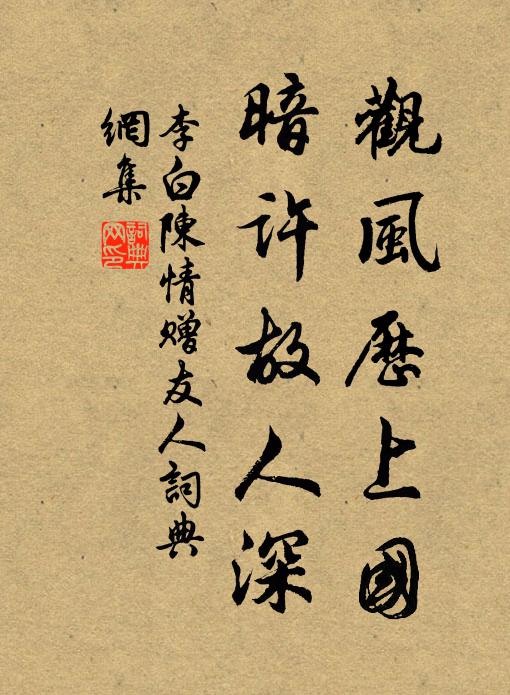 觀風歷上國
暗許故人深
李白陳情贈友人詞典
網集
詞典
网印